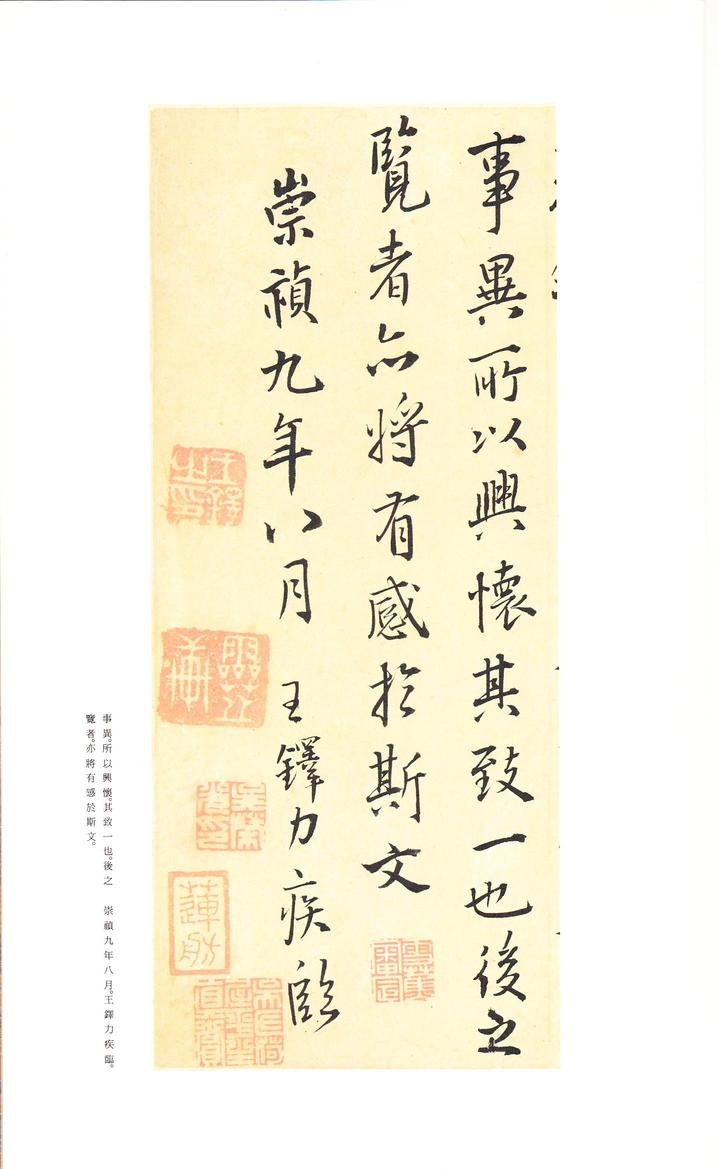 事異所以興懷其致一也後之
覽者亦將有感於斯文
崇禎九年八月 王鐸力疾臨
王鐸之印
蓮舫
事異。所以興懷。其致一也。後之
覽者。亦將有感於斯文。
崇禎九年八月。王鐸力疾臨。